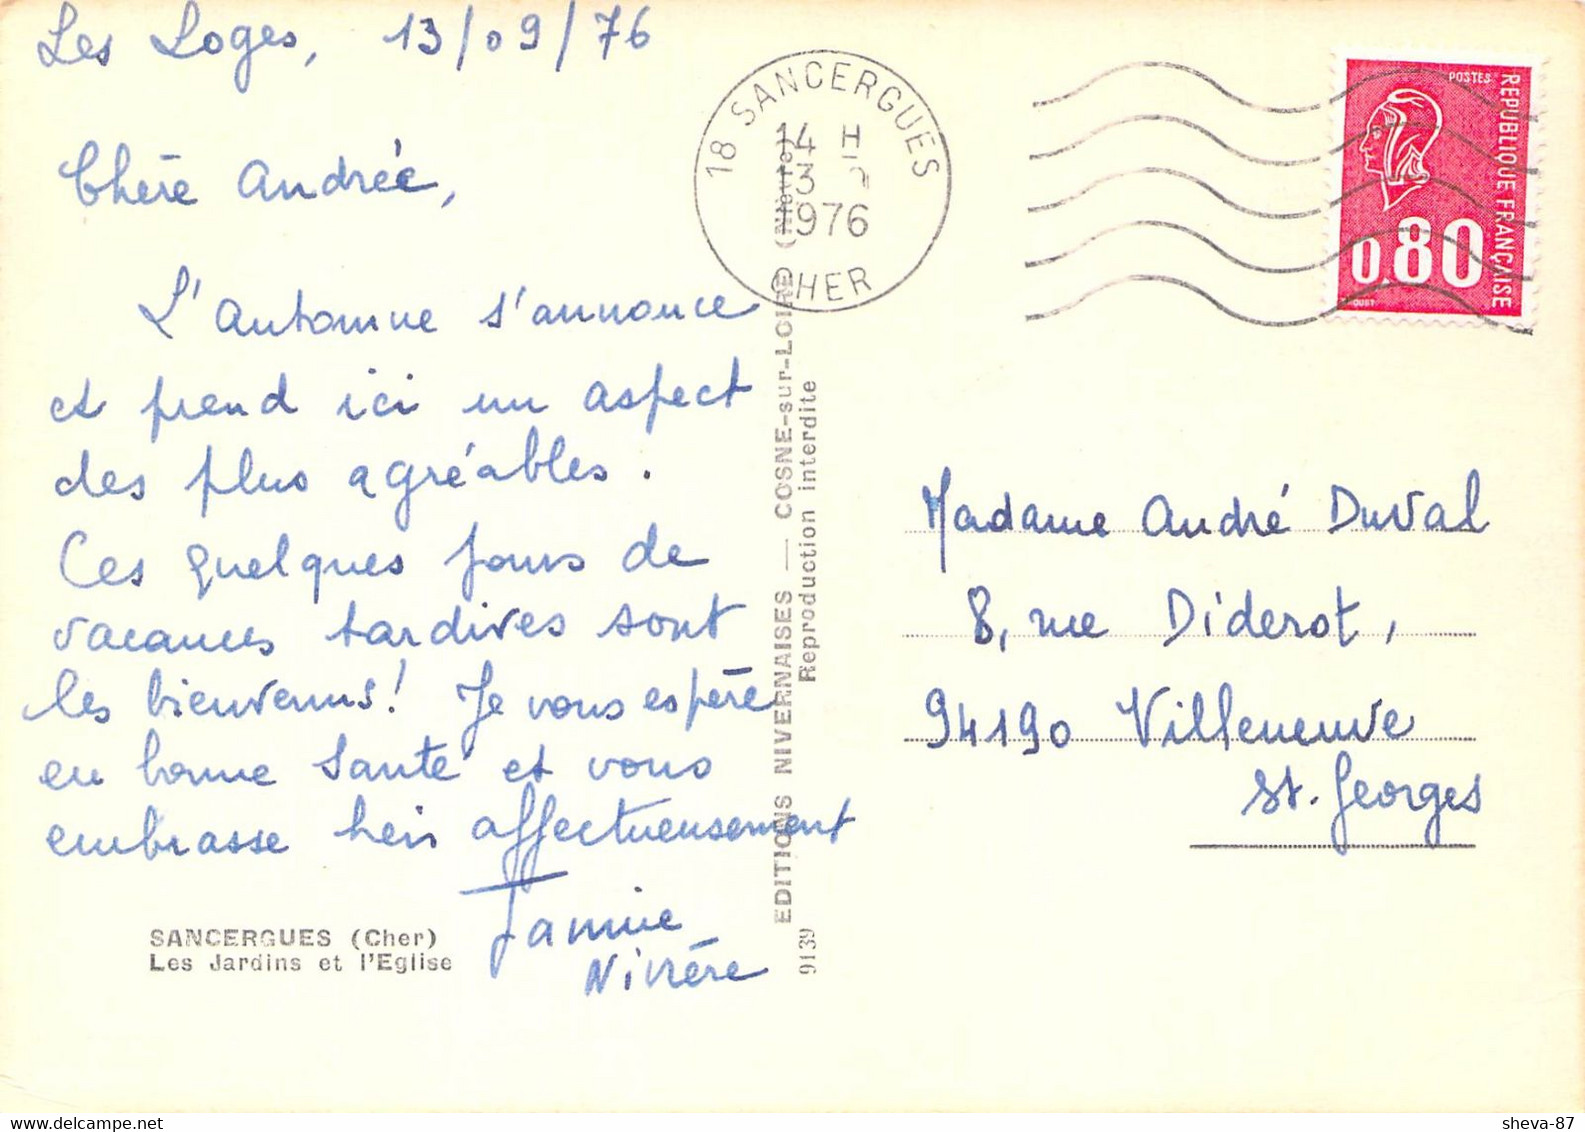 Les Loges, 13/09/76
Chère Andrée,
L'Automne s'annonce
et prend ici un aspect
des plus agréables.
Ces quelques jours de
vacances tardives sont
les bienvenus! Je vous espère
en bonne santé et vous
embrasse affectueusement
Janine
Nivière
SANCERGUES (Cher)
Les Jardins et l'Eglise
EDITIONS NIVERNAISES — COSNE-sur-LOIRE (Nièvre)
Reproduction interdite
9139
18 SANCERGUES
14 H
13
1976
CHER
POSTES
REPUBLIQUE FRANÇAISE
0,80
Madame André Duval
8, rue Diderot,
94190 Villeneuve
St. Georges
sheva-87